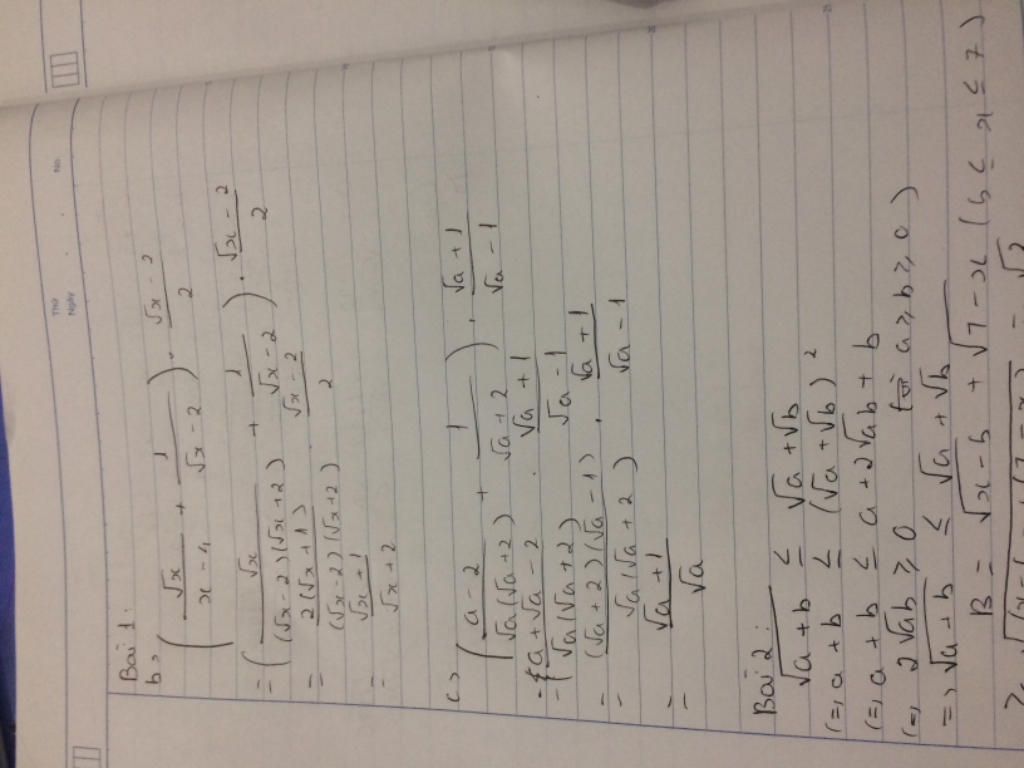 Thứ
Ngày
No.
Bài 1:
b, (√x / (x - 4) + 1 / (√x - 2)) . (√x - 2) / 2
= (√x / ((√x - 2)(√x + 2)) + 1 / (√x - 2)) . (√x - 2) / 2
= 2(√x + 1) / ((√x - 2)(√x + 2)) . (√x - 2) / 2
= (√x + 1) / (√x + 2)
c, ((a - 2) / (√a(√a + 2)) + 1 / (√a + 2)) . (√a + 1) / (√a - 1)
= (a + √a - 2) / (√a(√a + 2)) . (√a + 1) / (√a - 1)
= (√a + 2)(√a - 1) / (√a(√a + 2)) . (√a + 1) / (√a - 1)
= (√a + 1) / √a
Bài 2:
√(a + b) ≤ √a + √b
(=, a + b ≤ (√a + √b)²
(=, a + b ≤ a + 2√ab + b
(=, 2√ab ≥ 0 a ≥ b ≥ 0)
=, √(a + b) ≤ √a + √b
B = √(x - 6) + √(7 - x) (6 ≤ x ≤ 7)